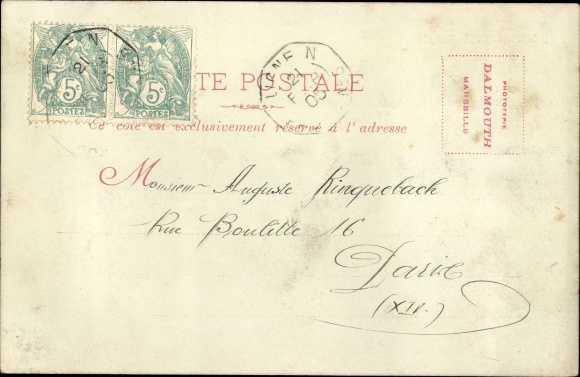 5c 5c
POSTES POSTES
LIGNE N
CARTE POSTALE
Ce côté est exclusivement réservé à l'adresse
PHOTOTYPIE
DALMOUTH
MARSEILLE
Monsieur Auguste Ringuebach
Rue Boulitte 16
Paris
(XIV.)